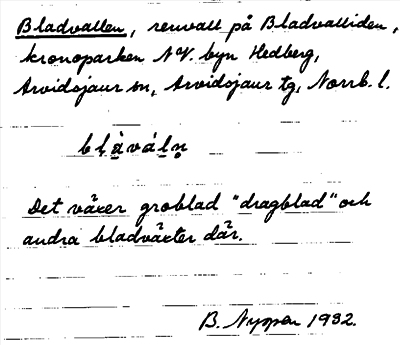 Bladvallen, renvall på Bladvalliden,
kronoparken NV. byn Hedberg,
Arvidsjaur sn, Arvidsjaur tg, Norrb. l.
blàváln̥
Det växer groblad "dragblad" och
andra bladväxter där.
B. Nyman 1932.